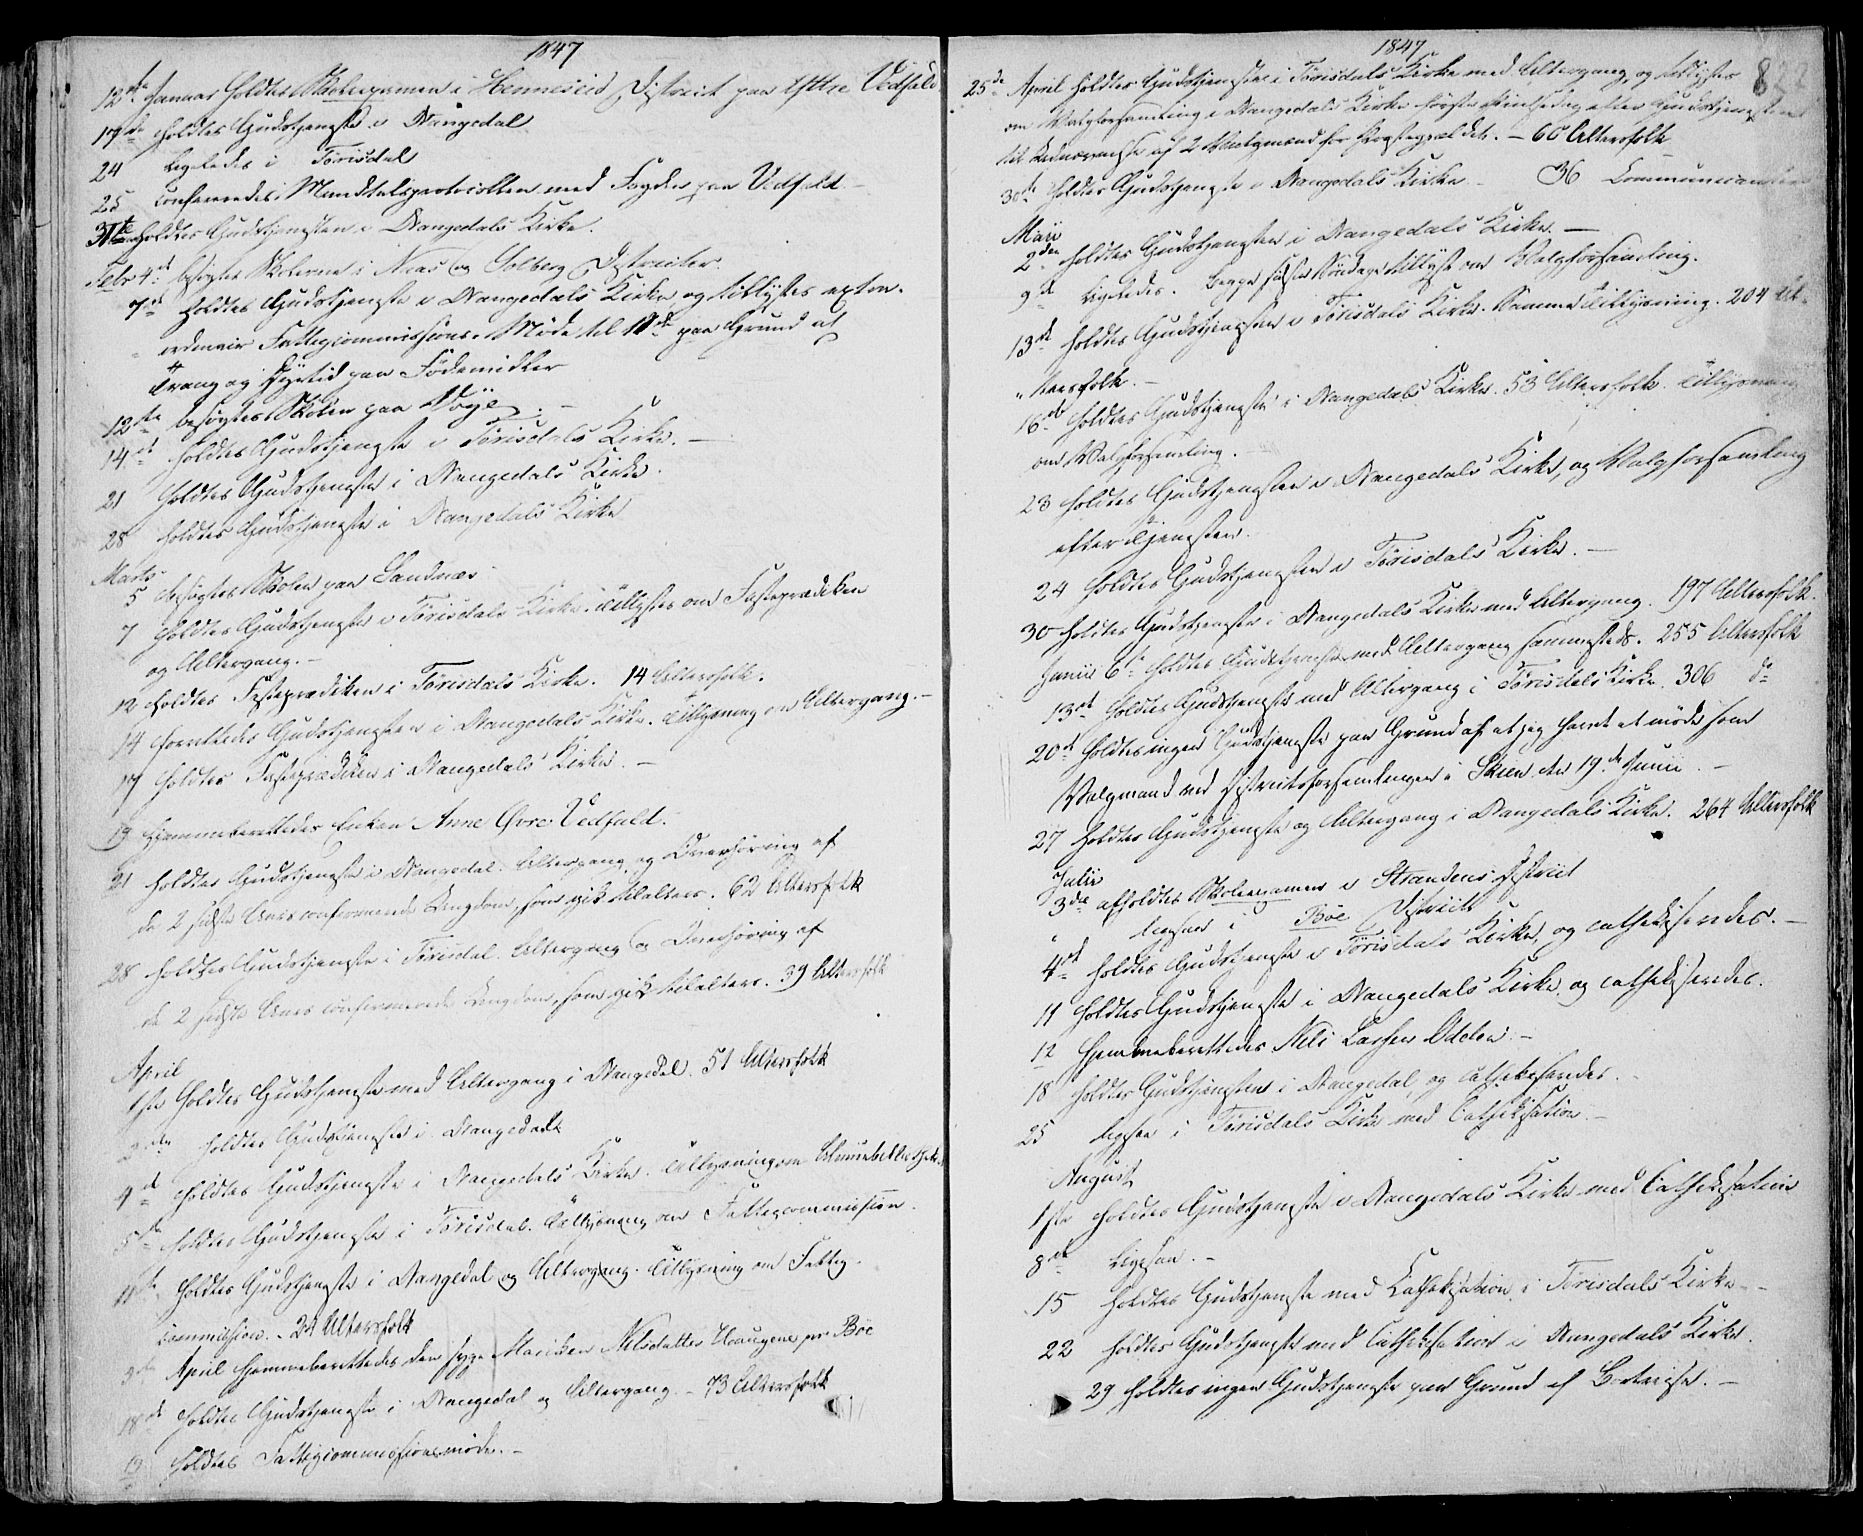 1847
12te Januar holdtes Skoleexamen i Henneseid District paa Yttre Vedfald
17de holdtes Gudstjeneste i Drangedal
24 Ligeledes i Tørisdal
25 confereredes Mandtalsprotocollen med Fogden paa Vedfald. –
31te holdtes Gudstjenesten i Drangedals Kirke.
Febr 4de besøgtes Skolerne i Næs og Solberg Districter.
7de holdtes Gudstjeneste i Drangedals Kirke og tillystes extra-
ordinair Fattigcommissions-Møde til paa Grund af
Trang og Dyrtid paa Födemidler
12te besøgtes Skolen paa Voje. –
14de holdtes Gudstjeneste i Tørisdals Kirke. –
21 holdtes Gudstjeneste i Drangedals Kirke.
28 holdtes Gudstjeneste i Drangedals Kirke
Marts
5 besøgtes Skolen paa Sandnæs
7 holdtes Gudstjeneste i Tørisdals Kirke. Tillystes om Fasteprædiken
og Altergang. –
12 holdtes Fasteprædiken i Tørisdals Kirke. 14 Altersfolk.
14 forrettedes Gudstjenesten i Drangedals Kirke. Tillysning om Altergang. –
17 holdtes Fasteprædiken i Drangedals Kirke. –
19 hjemmeberettedes Enken Anne Øvre Vedfald.
21 holdtes Gudstjeneste i Drangedal. Altergang og Overhøring af
de 2 sidste Aars confirmerede Ungdom, som gik til alters. 62 Altersfolk
28 holdtes Gudstjeneste i Tørisdal. Altergang og Overhøring af
de 2 sidste Aars confirmerede Ungdom, som gik til alters. 39 Altersfolk
April
1ste holdtes Gudstjeneste med Altergang i Drangedal. 51 Altersfolk
2den holdtes Gudstjeneste i Drangedal
4de holdtes Gudstjeneste i Drangedals Kirke. Tillysning om
5te holdtes Gudstjeneste i Tørisdal. Tillysning om Fattigcommission.
11te holdtes Gudstjeneste i Drangedal og Altergang. Tillysning om Fattig-
commission. – 24 Altersfolk
April hjemmeberettedes den syge Mariken Nilsdatter Haugene pr Bøe
18de holdtes Gudstjeneste i Drangedal og Altergang. – 73 Altersfolk
19 holdtes Fattigcommissionsmøde. –
1847
8
25de April holdtes Gudstjeneste i Tørisdals Kirke med Altergang og tillystes
om Valgforsamling i Drangedals Kirke første Pintsedag efter Gudstjenesten
til Udnævnelse af 2 Valgmænd for Præstegjældet. – 60 Altersfolk
30te holdtes Gudstjeneste i Drangedals Kirke – 36 Communicanter
Maii
2den holdtes Gudstjenesten i Drangedals Kirke. –
9de Ligeledes. Begge sidste Søndage tillyst om Valgforsamling.
13de holdtes Gudstjenesten i Tørisdals Kirke. Samme Tillysning. 204 Al-
tersfolk. –
16de holdtes Gudstjeneste i Drangedals Kirke. 53 Altersfolk. Tillysning
om Valgforsamling. –
23 holdtes Gudstjenesten i Drangedals Kirke, og Valgforsamling
efter Tjenesten.
24 holdtes Gudstjenesten i Tørisdals Kirke. –
30 holdtes Gudstjeneste i Drangedals Kirke med Altergang. 197 Altersfolk.
Junii 6te holdtes Gudstjeneste med Altergang sammesteds. 255 Altersfolk
13de holdtes Gudstjeneste med Altergang i Tørisdals Kirke. 306 do
20de holdtes ingen Gudstjeneste paa Grund af at jeg havde at møde som
Valgmand ved Districtsforsamlingen i Skien den 19de Junii. –
27 holdtes Gudstjeneste og Altergang i Drangedals Kirke. 264 Altersfolk
Julii
3die afholdtes Skoleexamen i Strandens District
" ligesaa i Bøe District
4de holdtes Gudstjeneste i Tørisdals Kirke, og cathekiseredes. –
11 holdtes Gudstjeneste i Drangedals Kirke og cathekiseredes.
12 hjemmeberettedes Nils Larsen Odden. –
18 holdtes Gudstjenesten i Drangedal, og cathekiseredes.
25 ligesaa i Tørisdals Kirke med Cathekisation. –
August
1ste holdtes Gudstjeneste i Drangedals Kirke med Cathekisation
8de Ligesaa. –
15 holdtes Gudstjeneste med Cathekisation i Tørisdals Kirke –
22 holdtes Gudstjeneste med Cathekisation i Drangedals Kirke.
29 holdtes ingen Gudstjeneste paa Grund af Bortreise. –